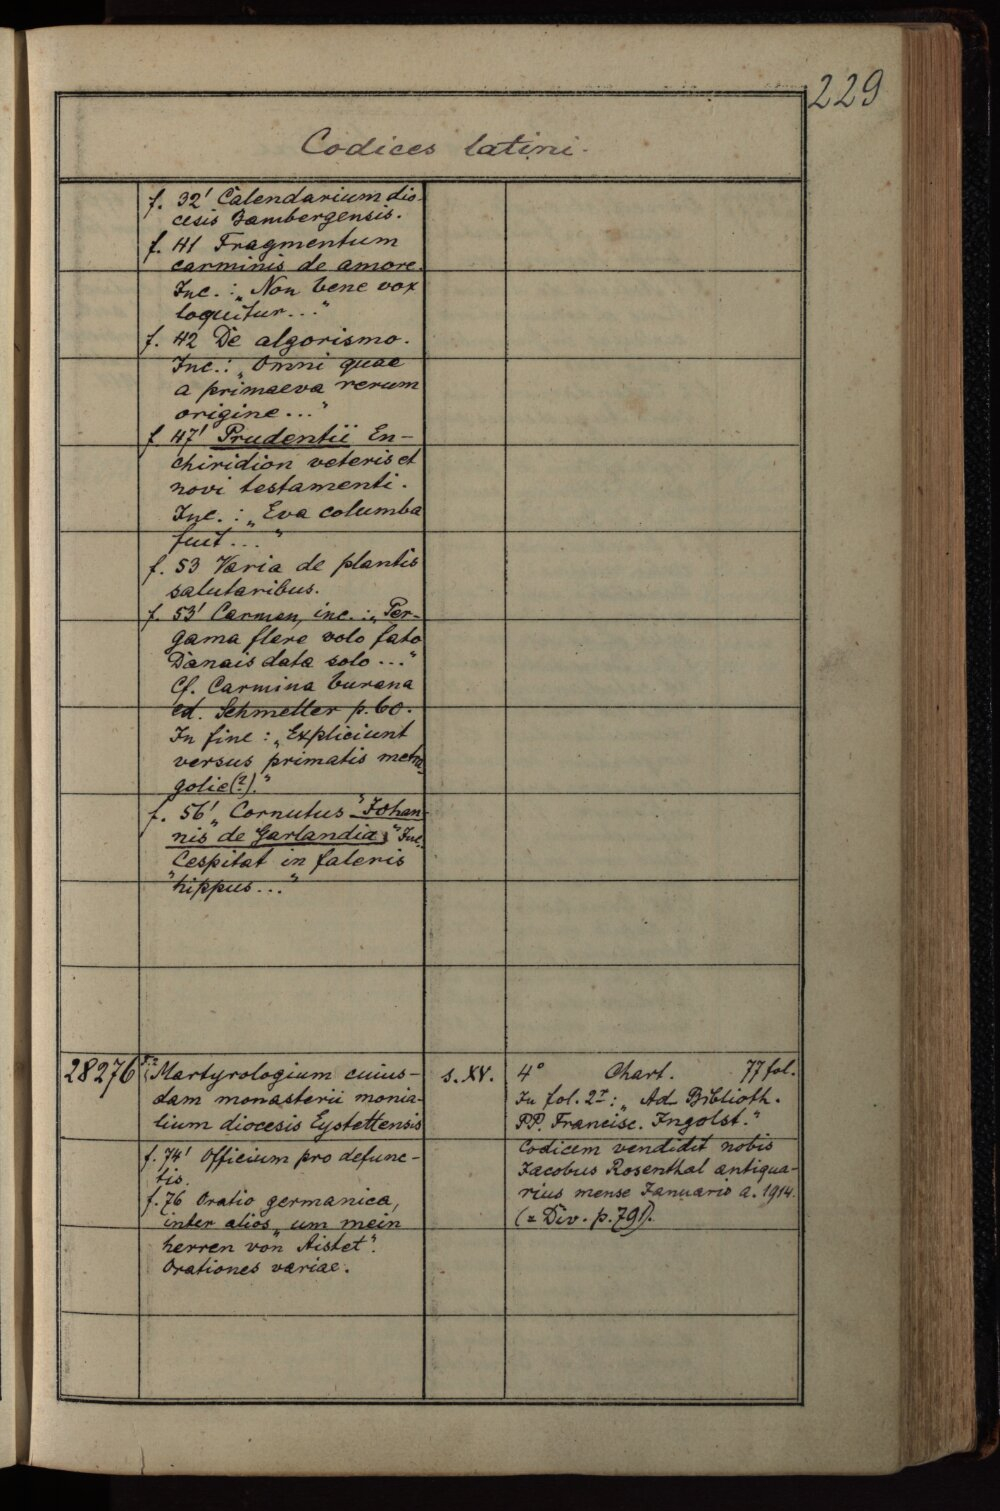 229
Codices latini.
f. 32' Calendarium dio-
cesis Bambergensis.
f. 41 Fragmentum
carminis de amore.
Inc.: „Non bene vox
loquitur..."
f. 42 De algorismo.
Inc.: „Omni quae
a primaeva rerum
origine..."
f. 47' Prudentii En-
chiridion veteris et
novi testamenti.
Inc.: „Eva columba
fuit..."
f. 53 Varia de plantis
salutaribus.
f. 53' Carmen, inc.: „Per-
gama flere volo fato
Danais data solo..."
Cf. Carmina burana
ed. Schmeller p. 60.
In fine: „Expliciunt
versus primatis
golie(?)."
f. 56' „Cornutus" Johan-
nis de Garlandia; Inc.
„Cespitat in faleris
hippus..."
28276 Martyrologium cuius-
dam monasterii monia-
lium diocesis Eystettensis
f. 74' Officium pro defunc-
tis.
f. 76 Oratio germanica,
inter alios „um mein
herren von Aistet".
Orationes variae.
s. XV.
4° Chart. 77 fol.
In fol. 2r: „Ad Biblioth.
PP. Francisc. Ingolst."
Codicem vendidit nobis
Jacobus Rosenthal antiqua-
rius mense Januario a. 1914.
(= Div. p. 791).